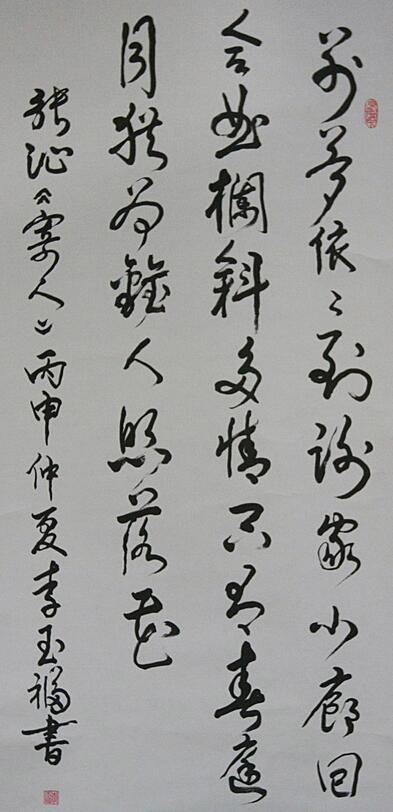 别梦依〻到谢家小廊回
合曲欄斜多情只有春庭
月猶为離人照落花
張泌《寄人》丙申仲夏李玉福書